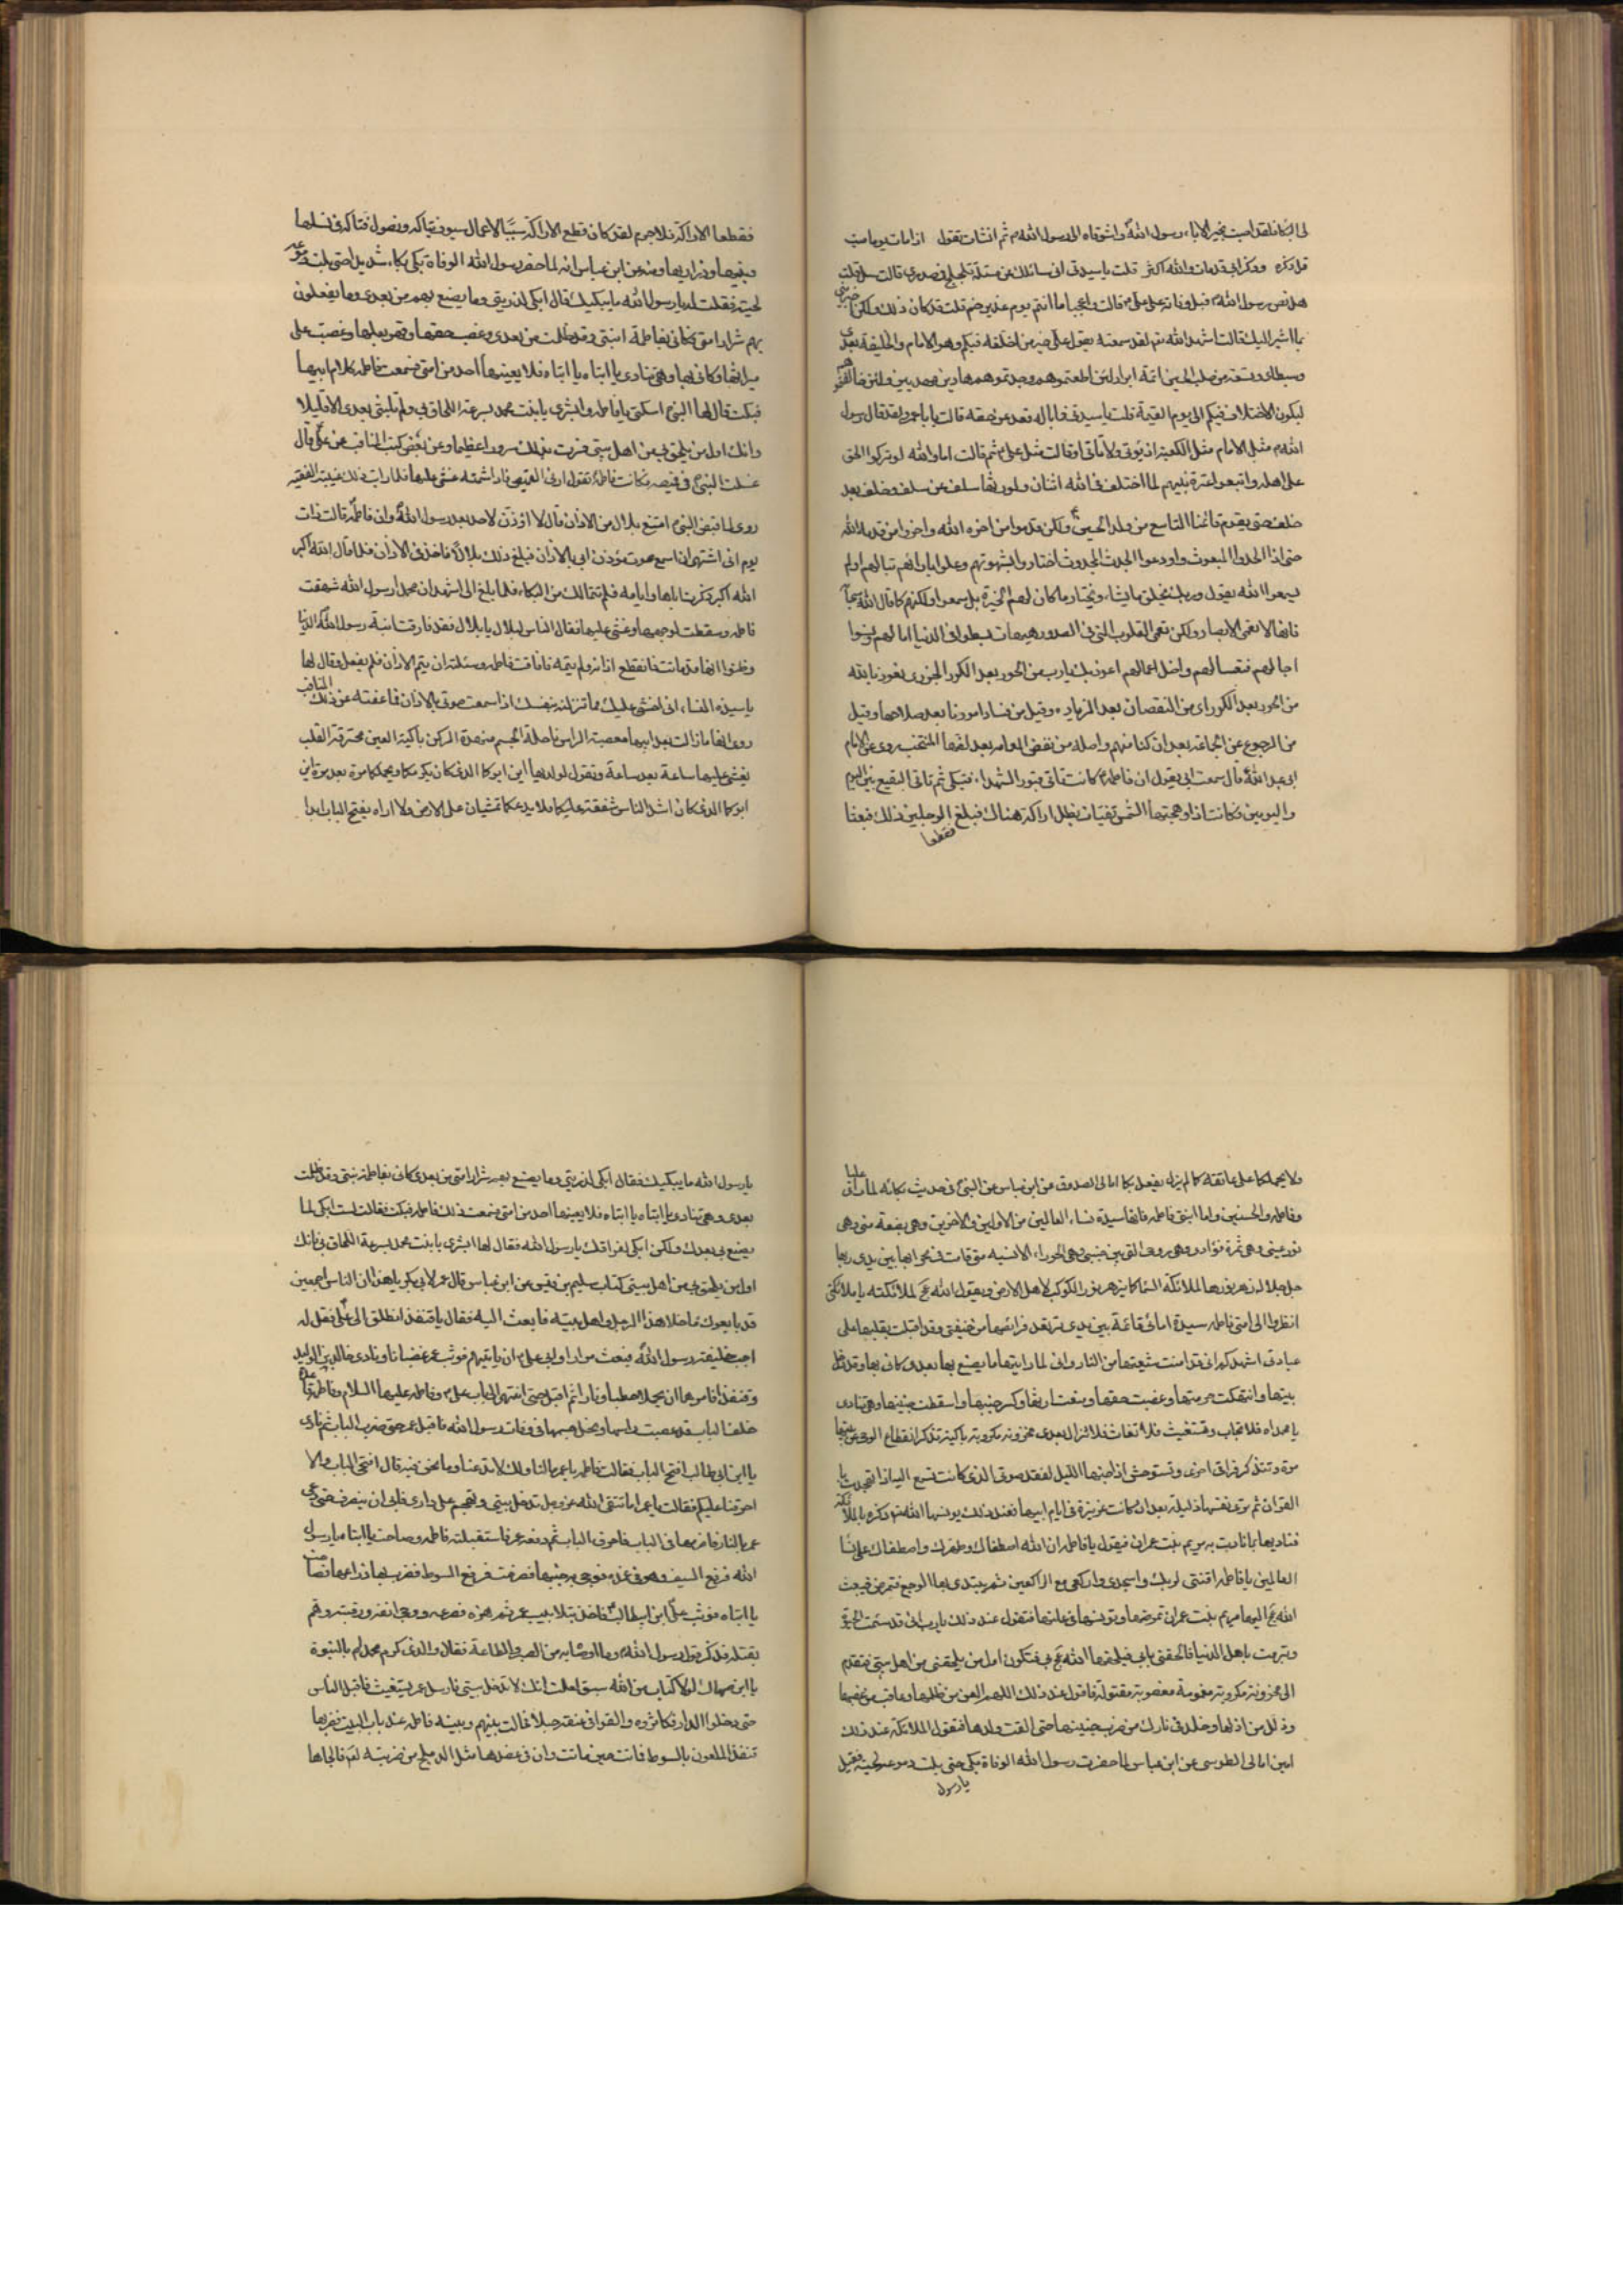 لى البكاء فلقد اصبت بخير الاباء رسول الله واشوقاه الى رسول الله ثم انشات تقول اذا مات يوما ميت
قل ذكره وذكر ابى قد مات والله اكثر قلت يا سيدتى انى سائلك عن مسئلة تتلجلج فى صدرى قالت سل قلت
هل نص رسول الله قبل وفاته على على قالت واعجبا انسيتم يوم غدير خم قلت قد كان ذلك ولكن اخبرينى
بما اشير اليك قالت اشهد الله تع لقد سمعته يقول على خير من اخلفه فيكم وهو الامام والخليفة بعدى
وسبطاى وتسعة من صلب الحسين ائمة ابرار لئن اطعتموهم وجدتموهم هادين مهديين ولئن خالفتموهم
ليكون الاختلاف فيكم الى يوم القيمة قلت يا سيدتى فما باله قعد عن حقه قالت يا با عمر لقد قال رسول
الله مثل الامام مثل الكعبة اذ تؤتى ولا تأتى او قالت مثل على ثم قالت اما والله لو تركوا الحق
على اهله واتبعوا عترة نبيهم لما اختلف فى الله اثنان ولورثها سلف عن سلف وخلف بعد
خلف حتى يقوم قائمنا التاسع من ولد الحسين ولكن قدموا من اخره الله واخروا من قدمه الله
حتى اذا الحدوا المبعوث واودعوا الجدث المجدوث اختاروا بشهوتهم وعملوا بارائهم تبا لهم اولم
يسمعوا الله يقول وربك يخلق ما يشاء ويختار ما كان لهم الخيرة بل سمعوا ولكنهم كما قال الله سبحانه
فانها لا تعمى الابصار ولكن تعمى القلوب التى فى الصدور هيهات بسطوا فى الدنيا امالهم ونسوا
اجالهم فتعسا لهم واضل اعمالهم اعوذ بك يا رب من الحور بعد الكور الجزرى نعوذ بالله
من الحور بعد الكور اى من النقصان بعد الزيادة وقيل من فساد امورنا بعد صلاحها وقيل
من الرجوع عن الجماعة بعد ان كنا منهم واصله من نقض العمامة بعد لفها المنتخب روى عن الامام
ابى عبد الله قال سمعت ابى يقول ان فاطمة كانت تاتى قبور الشهداء فتبكى ثم تاتى البقيع بين اليوم
واليومين وكانت اذا وهجتها الشمس تفيات بظل اراكة هناك فبلغ الرجلين ذلك فبعثا
فقطعا
فقطعا الاراكة فلا جرم لقد كان قطع الاراكة سببا لاعمال سيوف بتاكه ونصول فتاكه فى نسلها
وبنيها وذراريها ومنه عن ابن عباس انه لما حضر رسول الله الوفاة بكى بكاء شديدا حتى بلت دموعه
لحيته فقلت له يا رسول الله ما يبكيك قال ابكى لذريتى وما يصنع بهم من بعدى وما يفعلون
بهم شرار امتى كانى بفاطمة ابنتى وقد ظلمت من بعدى وغصب حقها وقهر بعلها وغصبت على
ميراثها وكانى بها وهى تنادى يا ابتاه يا ابتاه فلا يعينها احد من امتى فسمعت فاطمة كلام ابيها
فبكت قال لها النبى اسكتى يا فاطمة وابشرى يا بنت محمد بسرعة اللحاق بى ولم تلبثى بعدى الا قليلا
وانك اول من يلحق بى من اهل بيتى ففرحت بذلك سرورا عظيما وعن بعض كتب المناقب عن على قال
غسلت النبى فى قميصه فكانت فاطمة تقول ارنى القميص فاذا شمته غشى عليها فلما رات ذلك غيبته الفقيه
روى لما قبض النبى امتنع بلال من الاذان قال لا اؤذن لاحد بعد رسول الله وان فاطمة قالت ذات
يوم انى اشتهى ان اسمع صوت مؤذن ابى بالاذان فبلغ ذلك بلالا فاخذ فى الاذان فلما قال الله اكبر
الله اكبر ذكرت اباها وايامه فلم تتمالك من البكاء فلما بلغ الى اشهد ان محمدا رسول الله شهقت
فاطمة وسقطت لوجهها وغشى عليها فقال الناس لبلال يا بلال فقد فارقت ابنة رسول الله الدنيا
وظنوا انها قد ماتت فانقطع اذانه ولم يتمه فافاقت فاطمة وسئلته ان يتم الاذان فلم يفعل وقال لها
يا سيدة النساء انى اخشى عليك مما تنزلينه بنفسك اذا سمعت صوتى بالاذان فاعفته عن ذلك المناقب
روى انها ما زالت بعد ابيها معصبة الراس ناحلة الجسم منهدة الركن باكية العين محترقة القلب
يغشى عليها ساعة بعد ساعة وتقول لولديها اين ابوكما الذى كان يكرمكما ويحملكما مرة بعد مرة اين
ابوكما الذى كان اشد الناس شفقة عليكما فلا يدعكما تمشيان على الارض ولا اراه يفتح الباب ابدا
ولا يحملكما على عاتقه كما لم يزل يفعل بكما امالى الصدوق عن ابن عباس عن النبى فى حديث بكائه لما راى عليا
وفاطمة والحسنين واما ابنتى فاطمة فانها سيدة نساء العالمين من الاولين والاخرين وهى بضعة منى وهى
نور عينى وهى ثمرة فؤادى وهى روحى التى بين جنبى وهى الحوراء الانسيه متى قامت فى محرابها بين يدى ربها
جل جلاله زهر نورها لملائكة السماء كما يزهر نور الكوكب لاهل الارض ويقول الله عج لملائكته يا ملائكتى
انظروا الى امتى فاطمة سيدة امائى قائمة بين يدى ترتعد فرائصها من خيفتى وقد اقبلت بقلبها على
عبادتى اشهدكم انى قد امنت شيعتها من النار وانى لما رايتها ما يصنع بها بعدى كانى بها وقد دخل
بيتها وانتهكت حرمتها وغصبت حقها ومنعت ارثها وكسر جنبها واسقطت جنينها وهى تنادى
يا محمداه فلا تجاب وتستغيث فلا تغاث فلا تزال بعدى محزونة مكروبة باكية تتذكر انقطاع الوحى عن بيتها
مرة وتتذكر فراقى اخرى وتستوحش اذا جنها الليل لفقد صوتى الذى كانت تسمع اليه اذا تهجدت با
القران ثم ترى نفسها ذليلة بعد ان كانت عزيزة فى ايام ابيها فعند ذلك يونسها الله تع ذكره بالملائكة
فناديها بما نادت به مريم بنت عمران فيقول يا فاطمة ان الله اصطفاك وطهرك واصطفاك على نساء
العالمين يا فاطمة اقنتى لربك واسجدى واركعى مع الراكعين ثم يبتدى بها الوجع فتمرض فيبعث
الله عج اليها مريم بنت عمران تمرضها وتونسها فى علتها فتقول عند ذلك يا رب انى قد سئمت الحيوة
وتبرمت باهل الدنيا فالحقنى بابى فيلحقها الله عج بى فتكون اول من يلحقنى من اهل بيتى فتقدم
الى محزونة مكروبة مغمومة مغصوبة مقتولة فاقول عند ذلك اللهم العن من ظلمها وعاقب من غصبها
وذلل من اذلها وخلد فى نارك من ضرب جنبها حتى القت ولدها فتقول الملائكة عند ذلك
امين امالى الطوسى عن ابن عباس لما حضرت رسول الله الوفاة بكى حتى بلت دموعه لحيته فقيل
يا رسول
يا رسول الله ما يبكيك فقال ابكى لذريتى وما يصنع بهم شرار امتى من بعدى كانى بفاطمة بنتى وقد ظلمت
بعدى وهى تنادى يا ابتاه يا ابتاه فلا يعينها احد من امتى فسمعت ذلك فاطمة فبكت فقالت لست ابكى لما
يصنع بى بعدك ولكن ابكى لفراقك يا رسول الله فقال لها ابشرى يا بنت محمد بسرعة اللحاق بى فانك
اول من يلحق بى من اهل بيتى كتاب سليم بن قيس عن ابن عباس قال عمر لابى بكر يا هذا ان الناس اجمعين
قد بايعوك ما خلا هذا الرجل واهل بيته فابعث اليه فقال يا قنفذ انطلق الى على فقل له
اجب خليفة رسول الله فبعث مرارا وابى على ان ياتيهم فوثب عمر غضبانا ونادى خالد بن الوليد
وقنفذا فامرهما ان يحملا حطبا ونارا ثم اقبل حتى انتهى الى باب على وفاطمة عليهما السلام وفاطمة قاعدة
خلف الباب قد عصبت راسها ونحل جسمها فى وفات رسول الله فاقبل عمر حتى ضرب الباب ثم نادى
يا ابن ابى طالب افتح الباب فقالت فاطمة يا عمر ما لنا ولك لا تدعنا وما نحن فيه قال افتحى الباب والا
احرقنا عليكم فقالت يا عمر اما تتقى الله عز وجل تدخل بيتى وتهجم على دارى فابى ان ينصرف حتى دعى
عمر بالنار فاضرمها فى الباب فاحرق الباب ثم دفعه عمر فاستقبلته فاطمة وصاحت يا ابتاه يا رسول
الله فرفع السيف وهو فى غمده فوجى به جنبها فصرخت فرفع السوط فضرب بها ذراعها فصاحت
يا ابتاه فوثب على ابن ابيطالب فاخذ بتلابيب عمر ثم هزه فصرعه ووجا انفه ورقبته وهم
بقتله فذكر قول رسول الله وما اوصاه به من الصبر والطاعة فقال والذى كرم محمدا بالنبوة
يا ابن صهاك لولا كتاب من الله سبق لعلمت انك لا تدخل بيتى فارسل عمر يستغيث فاقبل الناس
حتى دخلوا الدار فكاثروه والقوا فى عنقه حبلا فحالت بينهم وبينه فاطمة عند باب البيت فضربها
قنفذ الملعون بالسوط فماتت حين ماتت وان فى عضدها مثل الدملج من ضربته لعنه فالجاها